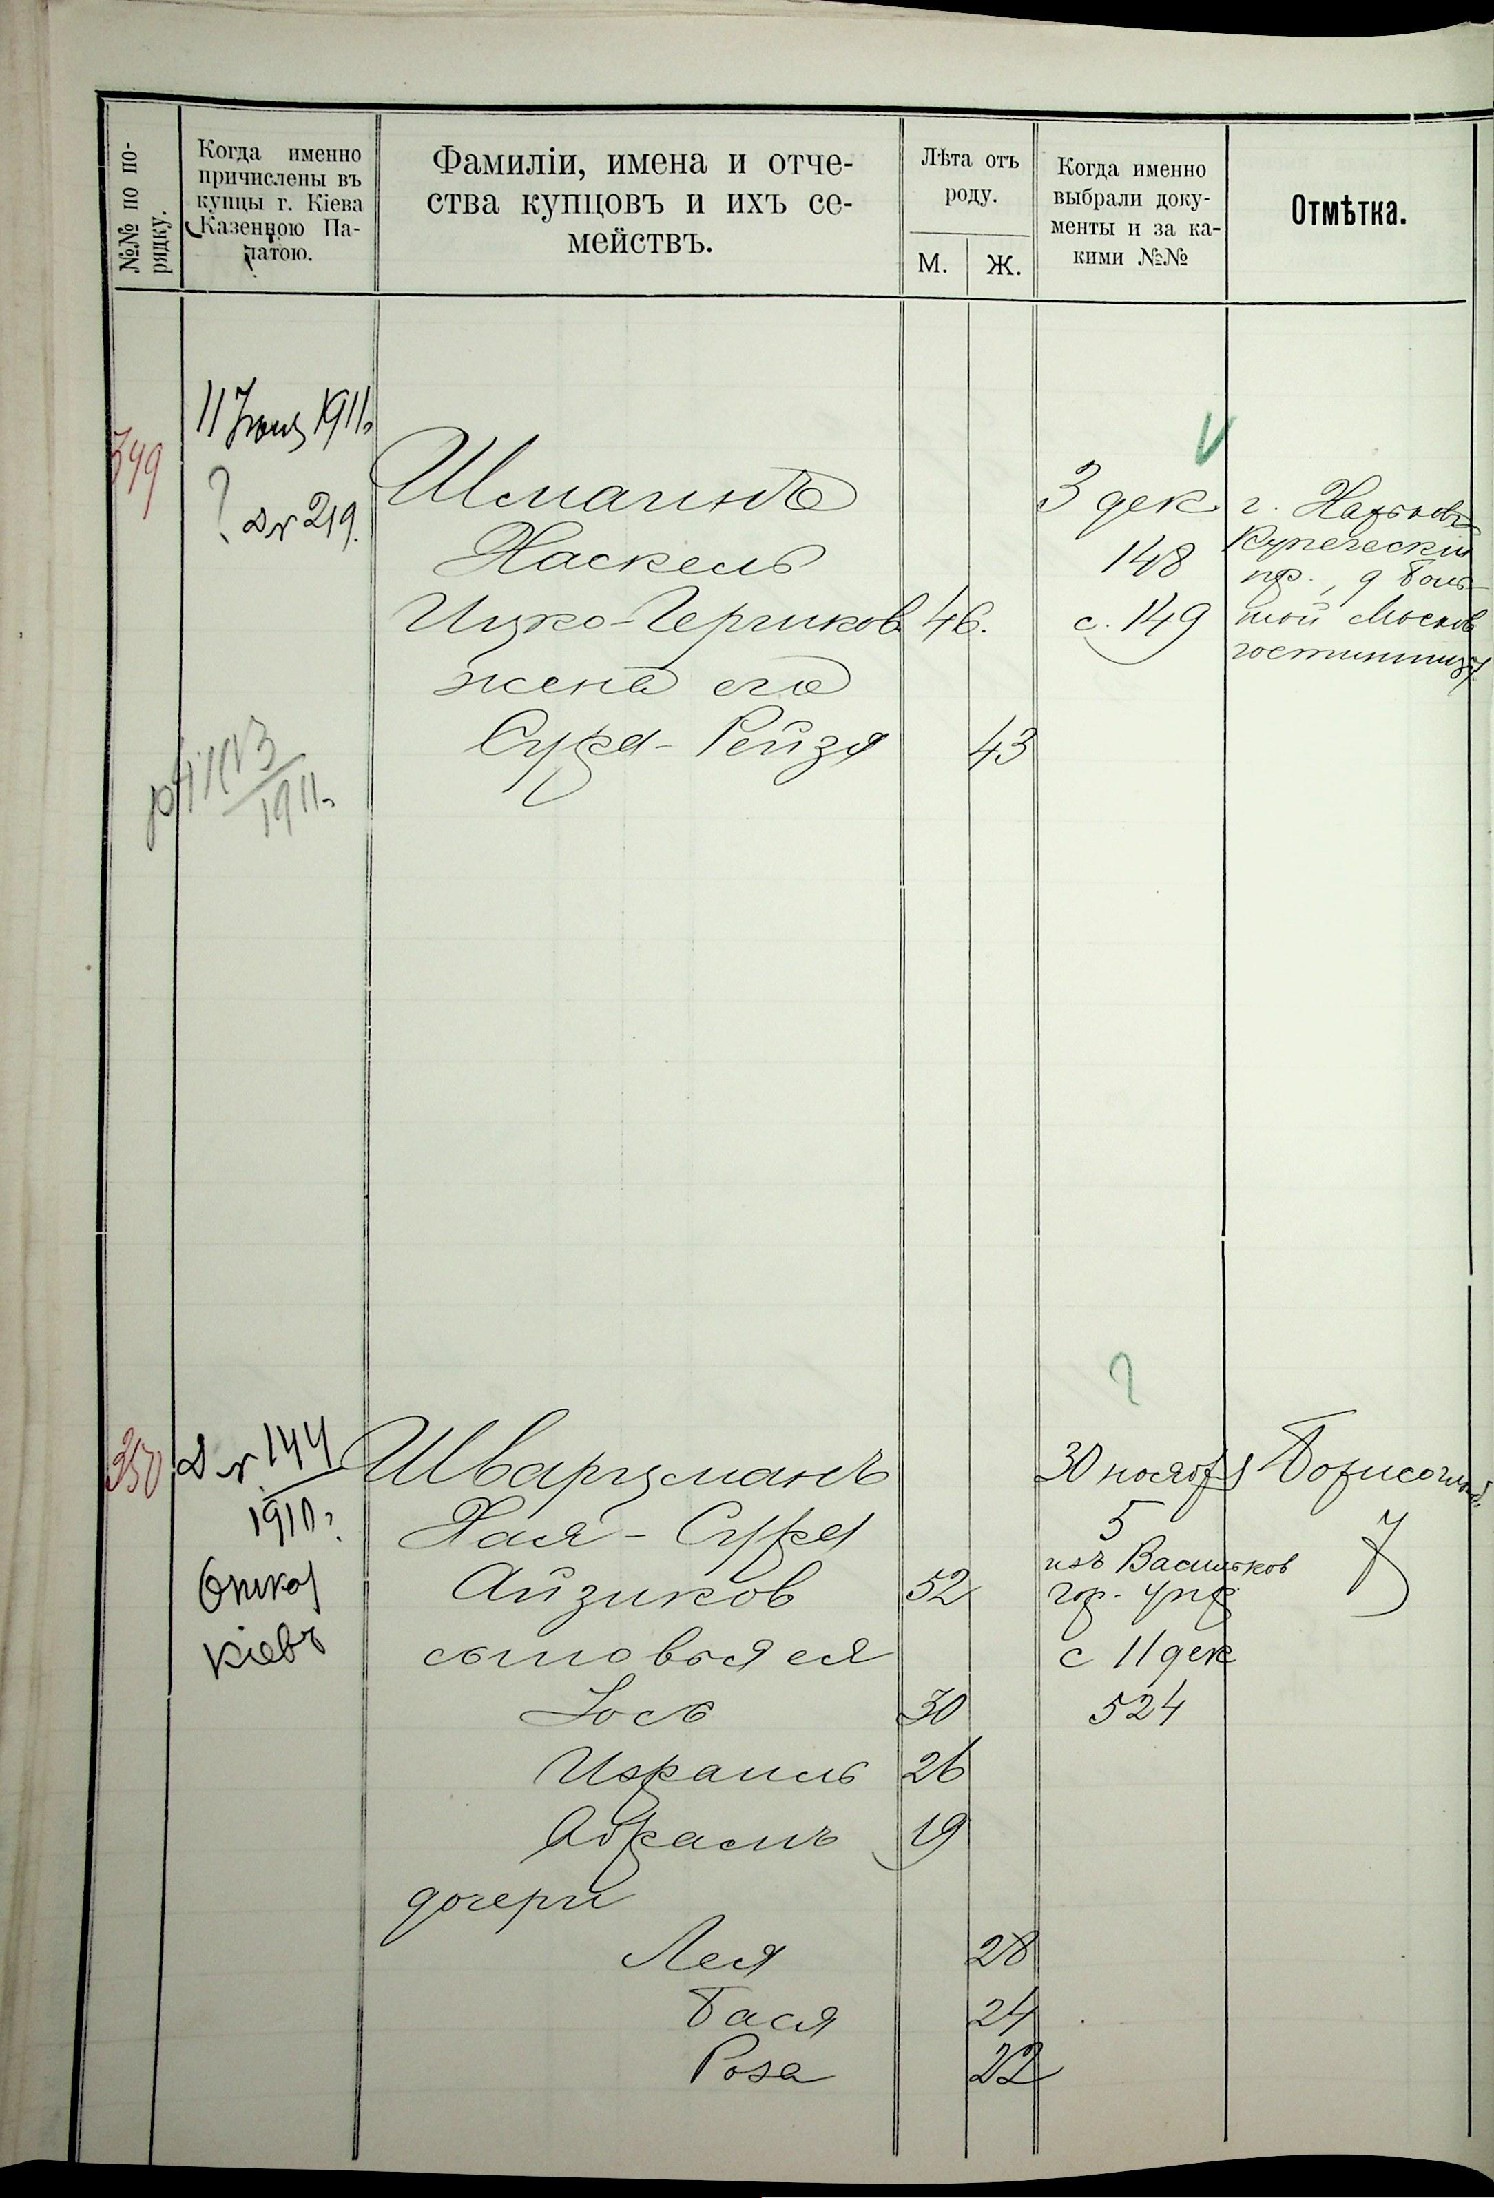 №№ по по-
рядку.
Когда именно
причислены въ
купцы г. Кіева
Казенною Па-
латою.
Фамиліи, имена и отче-
ства купцовъ и ихъ се-
мействъ.
Лѣта отъ
роду.
М.
Ж.
Когда именно
выбрали доку-
менты и за ка-
кими №№
Отмѣтка.
349
11 Іюня 1911 г.
? Д № 219.
Шмагинъ
Хаскель
Ицко-Гершков 46.
жена его
Сура-Рейзя 43
3 дек.
148
с. 149
г. Харьковъ
Купеческій
пр., д Боль-
шой Москов
гостинницы
1911 г.
350
Д № 144
1910 г.
Кіевъ
Шварцманъ
Хая-Сура
Айзиков 52
сыновья ея
Іось 30
Израиль 26
Абрамъ 19
дочери
Лея 28
Бася 24
Роза 22
?
30 ноября
5
изъ Васильков
гор. упр
с 11 дек
524
Борисоглѣб.
7